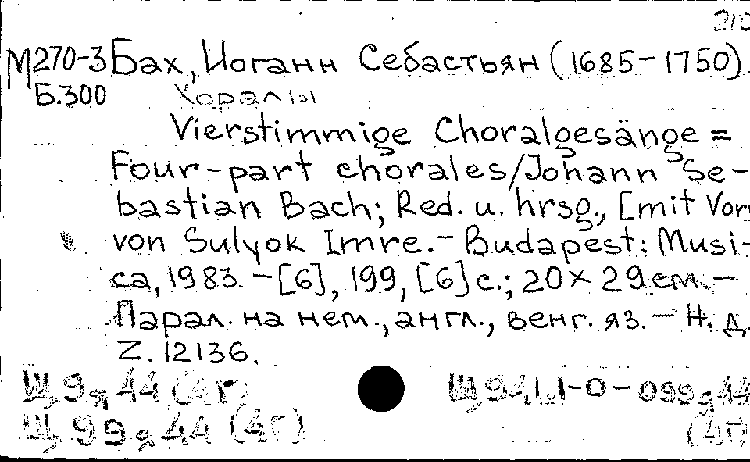 М270-3 Бах, Иоганн Себастьян (1685-1750).
Б.300 Хоралы
Vierstimmige Choralgesänge =
Four-part chorales/Johann Se-
bastian Bach; Red. u. hrsg., [mit Vor
von Sulyok Imre. - Budapest: Musi-
ca, 1983. - [6], 199, [6] с.; 20×29см. -
Парал. на нем., англ., венг. яз. - Н. д.
Z. 12136.
Щ9я44 (4Г)
Щ99я44 (4Г) (4Г)